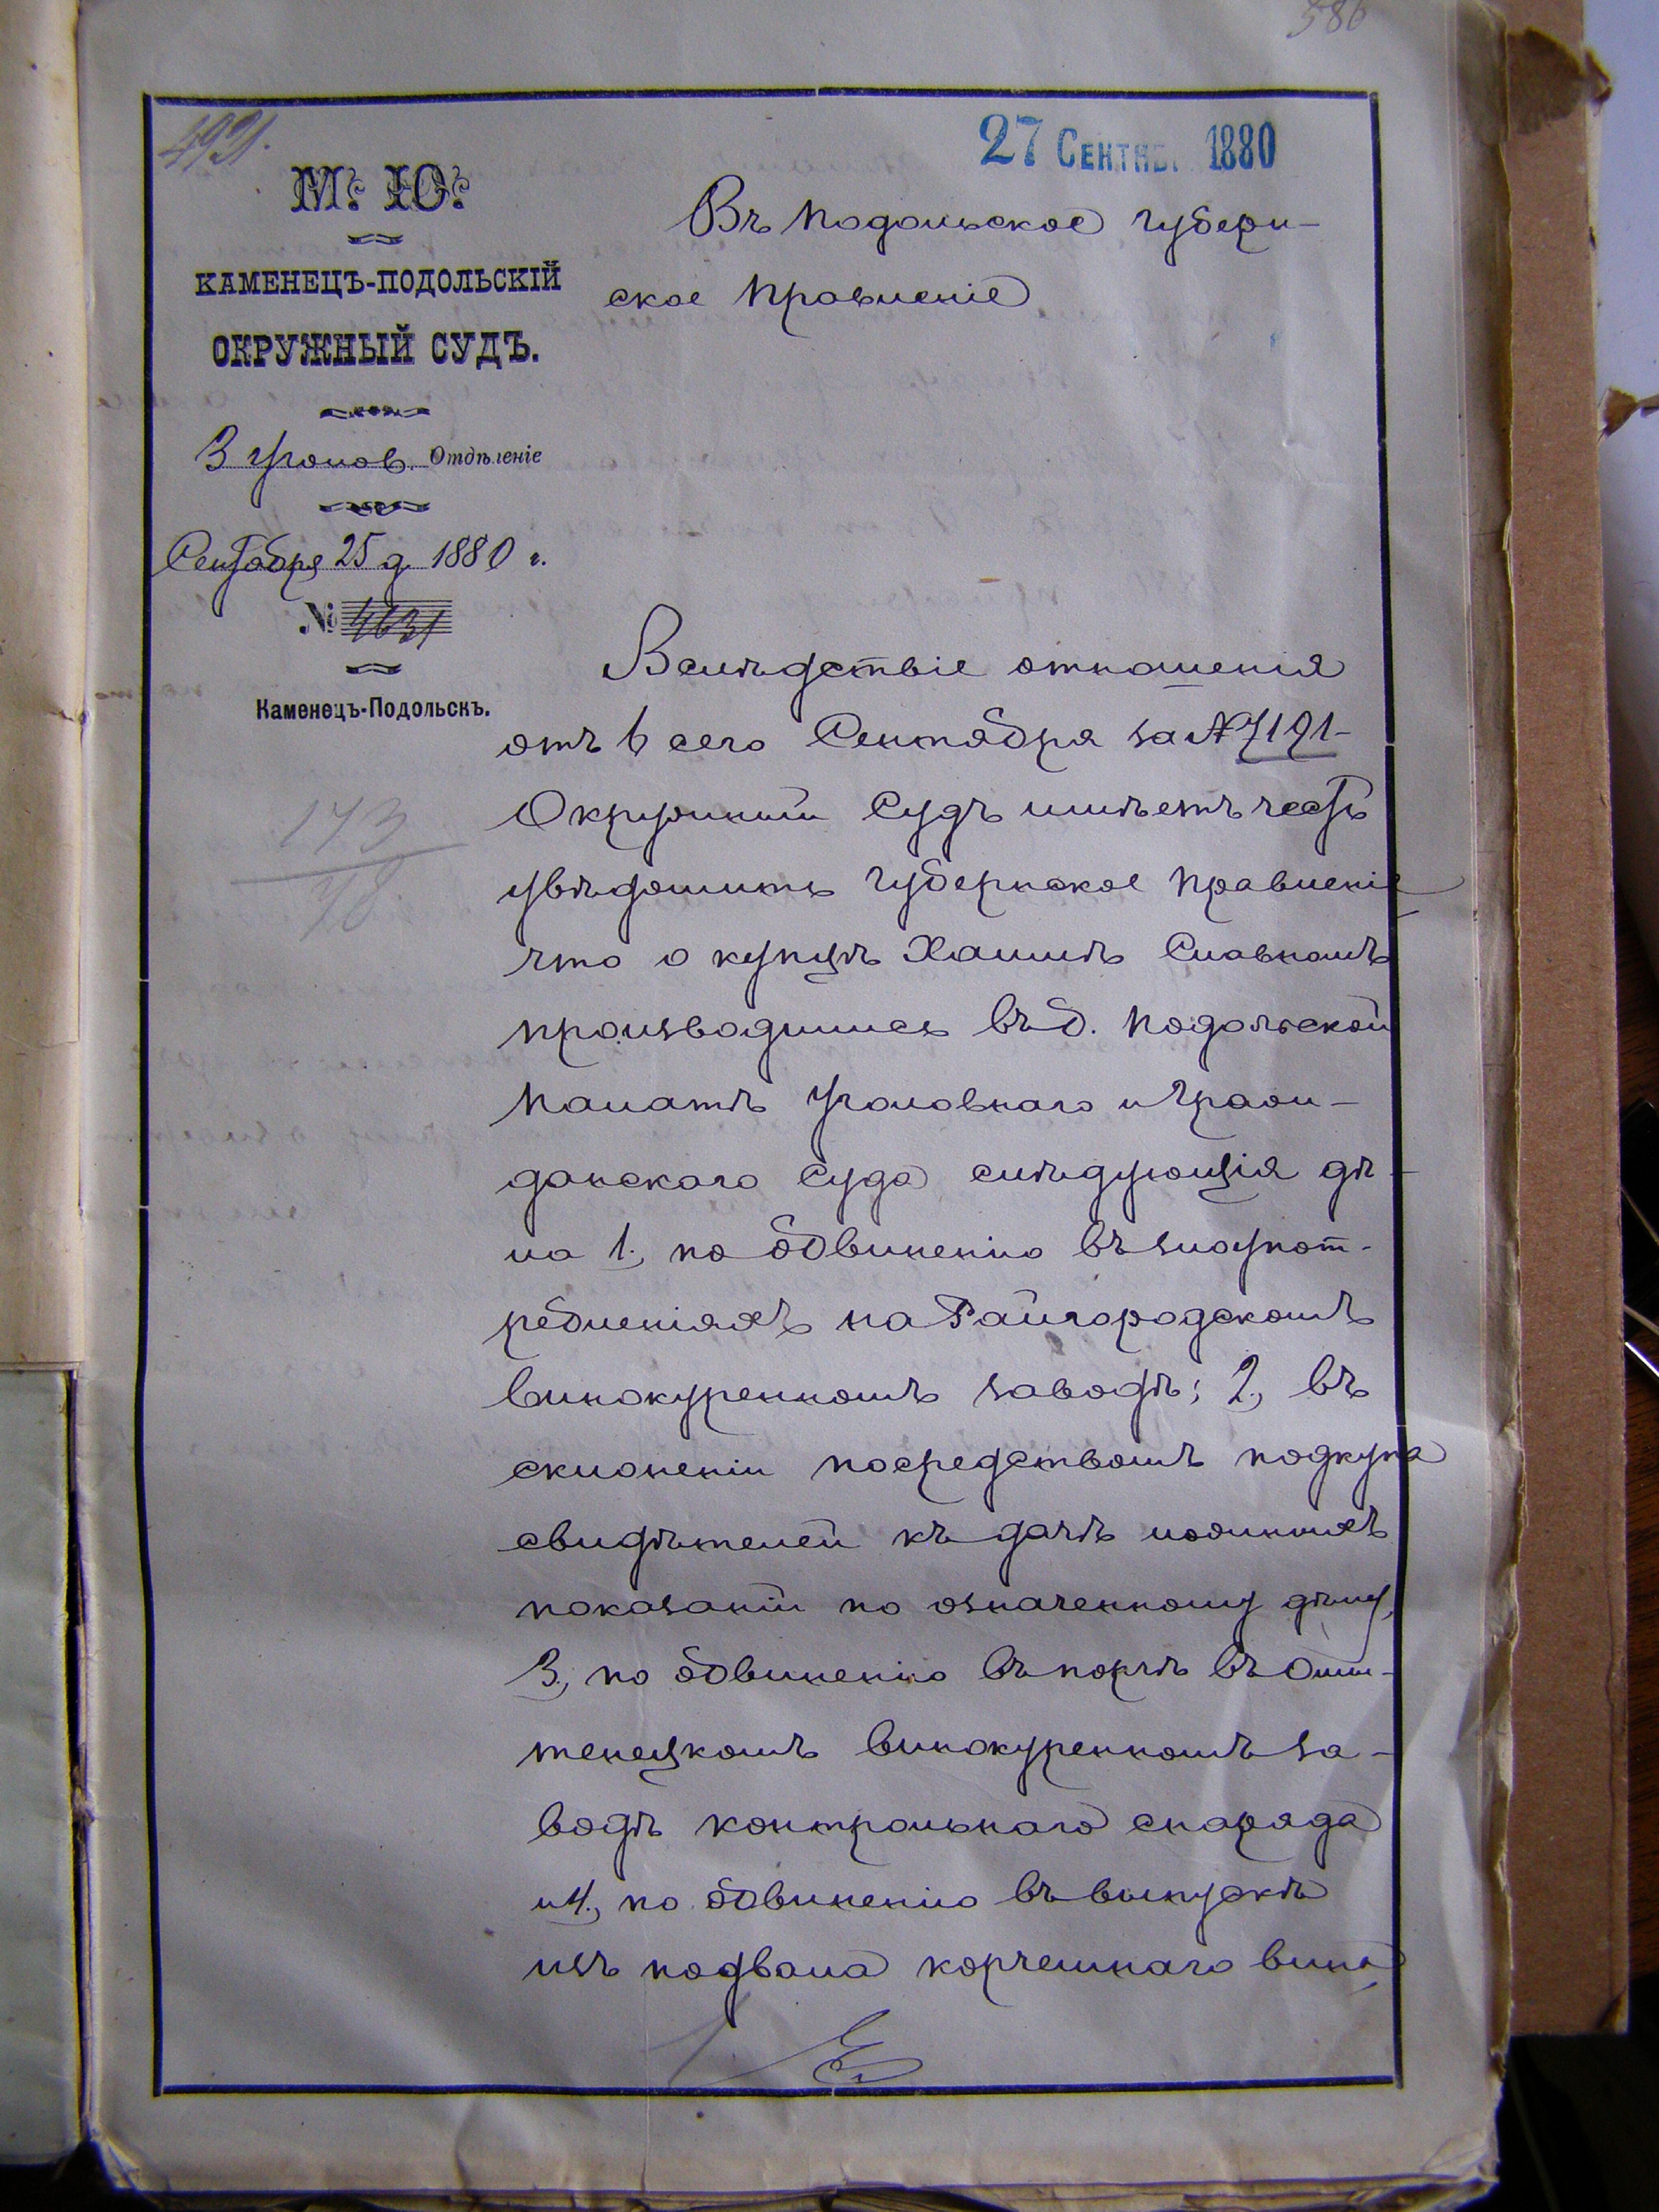 386
4921.
27 СЕНТЯБ. 1880
М. Ю.
КАМЕНЕЦЪ-ПОДОЛЬСКІЙ
ОКРУЖНЫЙ СУДЪ.
3 Уголов. Отдѣленіе
Сентября 25 д. 1880 г.
№ 4631
Каменецъ-Подольскъ.
173
78
Въ Подольское Губерн-
ское Правленіе
Вслѣдствіе отношенія
отъ 6 сего Сентября за № 7191-
Окружный Судъ имѣетъ честь
увѣдомить Губернское Правленіе
что о купцѣ Хаимѣ Славномъ
производились въ б. Подольской
Палатѣ Уголовнаго и Граж-
данскаго Суда слѣдующія дѣ-
ла 1., по обвиненію въ злоупот-
ребленіяхъ на Райгородскомъ
винокуренномъ заводѣ; 2., въ
склоненіи посредствомъ подкупа
свидѣтелей къ дачѣ ложныхъ
показаній по означенному дѣлу,
3., по обвиненію въ порчѣ въ
винокуренномъ за-
водѣ контрольнаго снаряда
и 4., по обвиненію въ выпускѣ
изъ подвала корчемнаго вина